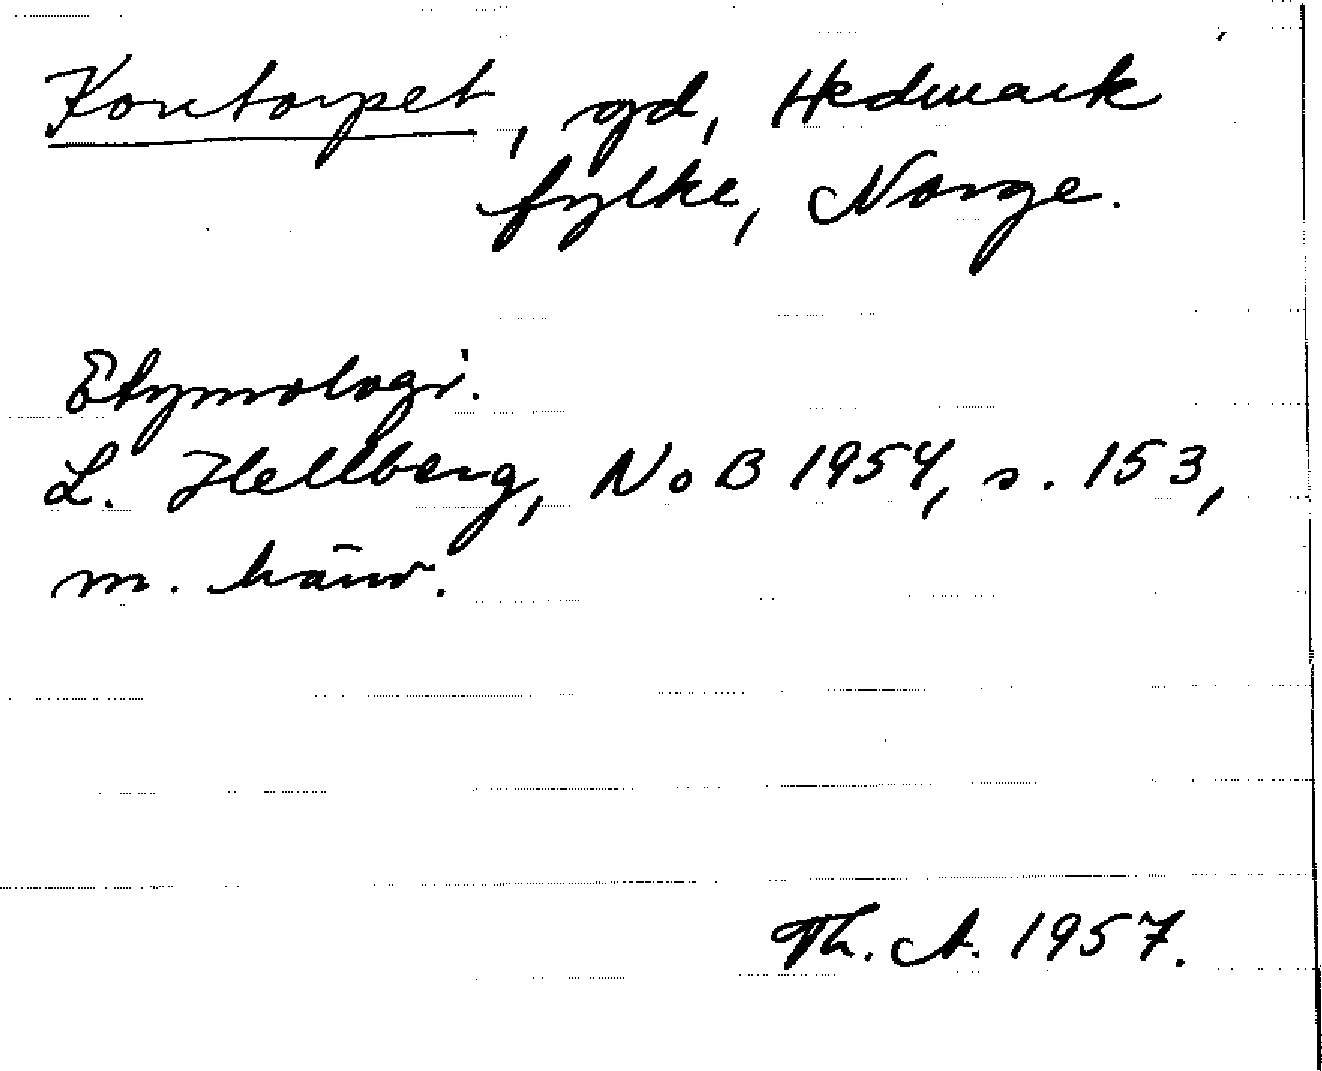 Kontorpet, gd, Hedmark
fylke, Norge.
Etymologi.
L. Hellberg, NoB 1954, s. 153,
m. hänv.
Th. A. 1957.